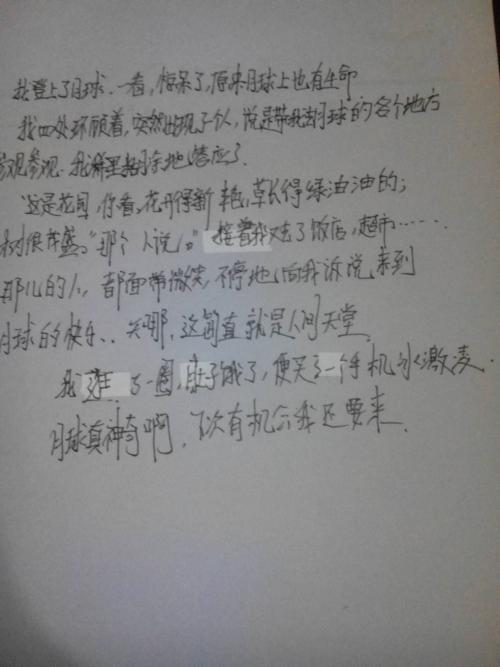 我登上了月球.一看,惊呆了,原来月球上也有生命
我四处环顾着,突然出现了个人,说是带我去月球的各个地方
参观参观.我稀里糊涂地答应了.
"这是花园,你看,花开得新艳,草长得绿油油的;
树很茂盛。"那个人说。接着我又去了饭店,超市……
那儿的人,都面带微笑,不停地向我诉说来到
月球的快乐..天哪,这简直就是人间天堂
我逛了一圈,肚子饿了,便买了一个手机冰激
月球真神奇啊,下次有机会我还要来.